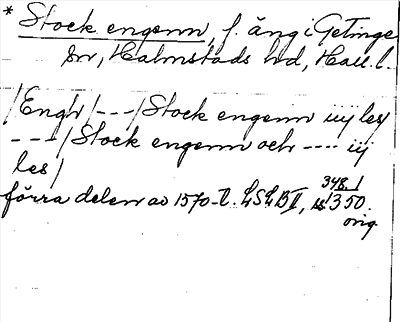 * Stock engenn, f. äng i Getinge
sn, Halmstads hd, Hall. l.
/Engh/---/Stock engenn iiij les/
---/Stock engenn och ---- iij
les/
förra delen av 1570-t. LSLB II, s 350.
348. 1
orig.